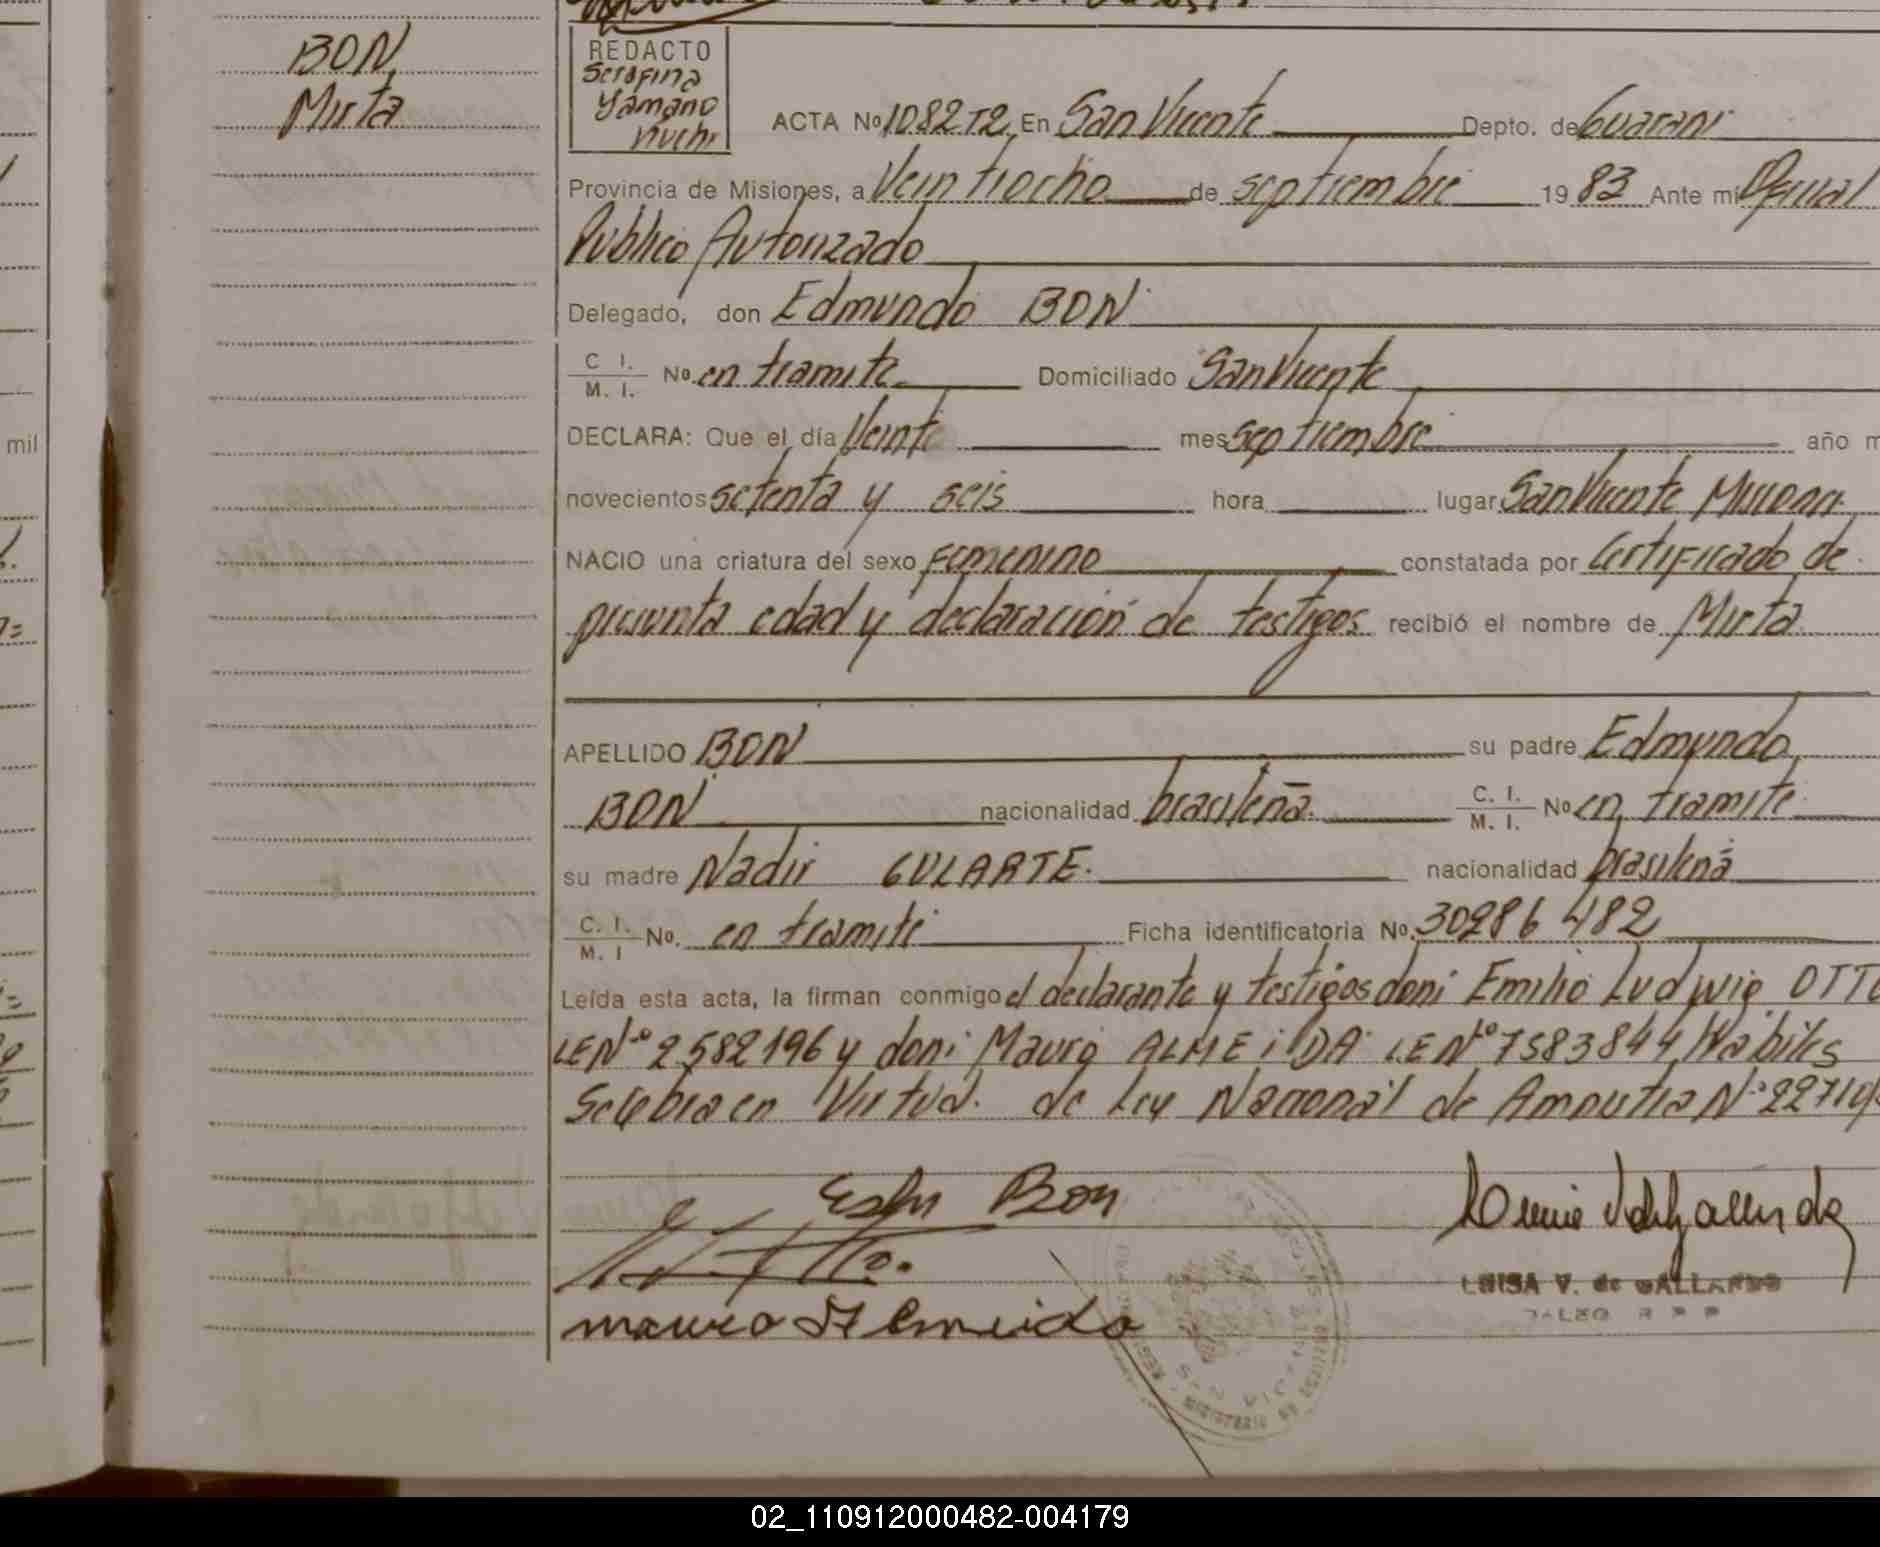 BON
Mirta
REDACTO
Serafina
Yamano
Kuchi
ACTA Nº 1082 T2, En San Vicente Depto. de Guarani
Provincia de Misiones, a Veintiocho de septiembre 1983 Ante mi Oficial
Público Autorizado
Delegado, don Edmundo BON
C. I. / M. I. No. en tramite Domiciliado San Vicente
DECLARA: Que el día Veinte mes septiembre año m
mil
novecientos setenta y seis hora lugar San Vicente Misiones
NACIO una criatura del sexo femenino constatada por Certificado de
presunta edad y declaración de testigos recibió el nombre de Mirta
APELLIDO BON su padre Edmundo
BON nacionalidad brasileña C. I. / M. I. No. en tramite
su madre Nadir GULARTE. nacionalidad brasileña
C. I. / M. I No. en tramite Ficha identificatoria No. 30286482
Leída esta acta, la firman conmigo el declarante y testigos don: Emilio Ludwig OTTO
LE Nº 2582196 y don: Mauro ALMEiDA LE Nº 7583844 Habiles
Se labra en Virtud de Ley Nacional de Amnistia Nº 22710
Bon
mauro Almeida
LUISA V. de GALLARDO
02_110912000482-004179